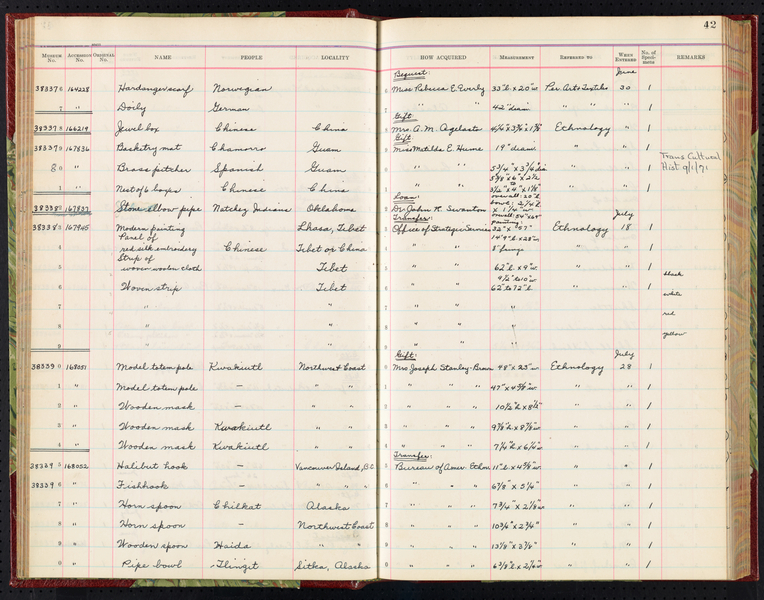 42
MUSEUM No. ACCESSION No. ORIGINAL No. NAME PEOPLE LOCALITY HOW ACQUIRED MEASUREMENT REFERRED TO WHEN ENTERED No. of Specimens REMARKS
Bequest: June
38337 6 164228 Hardanger scarf Norwegian Miss Rebecca E. Everly 33"l x 20"w Per. Arts Textiles 30 1
7 " Doily German " " 42" diam " " " 1
Gift:
38337 8 166219 Jewel box Chinese China Mrs. A. M. Ethnology " 1
Gift:
38337 9 167836 Basketry mat Chamorro Guam Miss Matilda E. Hume 19" diam " " 1
Trans Cultural Hist 9/1/71
0 " Brass pitcher Spanish Guam " " 5 3/4" x 3 3/4" dia " " 1
1 " Nest of 6 boxes Chinese China " " " " 1
Loan:
38338 2 167837 Stone elbow pipe Natchez Indians Oklahoma Dr. John R. Swanton overall: 20"l
Transfer: July
38338 3 167905 Modern painting Lhasa, Tibet Office of Strategic Services Ethnology 18 1
4 " Panel of red silk embroidery Chinese Tibet or China " " 14'9"l x 28"w 8" fringe " " 1
5 Strip of woven woolen cloth Tibet " " 62"l x 9"w " " 1
6 Woven strip Tibet " " 9 1/2" to 10"w 62" to 72"l " " 1 black
7 " " " " " white
8 " " " " " red
9 " " " " " yellow
Gift: July
38339 0 168051 Model totem pole Kwakiutl Northwest Coast Mrs Joseph Stanley-Brown 48" x 25"w Ethnology 28 1
1 " Model totem pole — " " " " 47" x 4 5/8"w " " 1
2 " Wooden mask — " " " " 10 1/2"l x 8 1/2" " " 1
3 " Wooden mask Kwakiutl " " " " 9 7/8"l x 8 7/8"w " " 1
4 " Wooden mask Kwakiutl " " " " 7 1/4"l x 6 1/4"w " " 1
Transfer:
38339 5 168052 Halibut hook — Vancouver Island, B.C. Bureau of Amer. Ethn. 11"l x 4 5/8"w " " 1
38339 6 " Fishhook — " " " " " 6 7/8" x 5 1/4" " " 1
7 " Horn spoon Chilkat Alaska " " 7 3/4" x 2 1/8"w " " 1
8 " Horn spoon — Northwest Coast " " 10 3/4" x 2 3/4" " " 1
9 " Wooden spoon Haida " " " " 13 1/8" x 3 7/8" " " 1
0 " Pipe bowl Tlingit Sitka, Alaska " " 6 3/8"l x 2 1/4"w " " 1